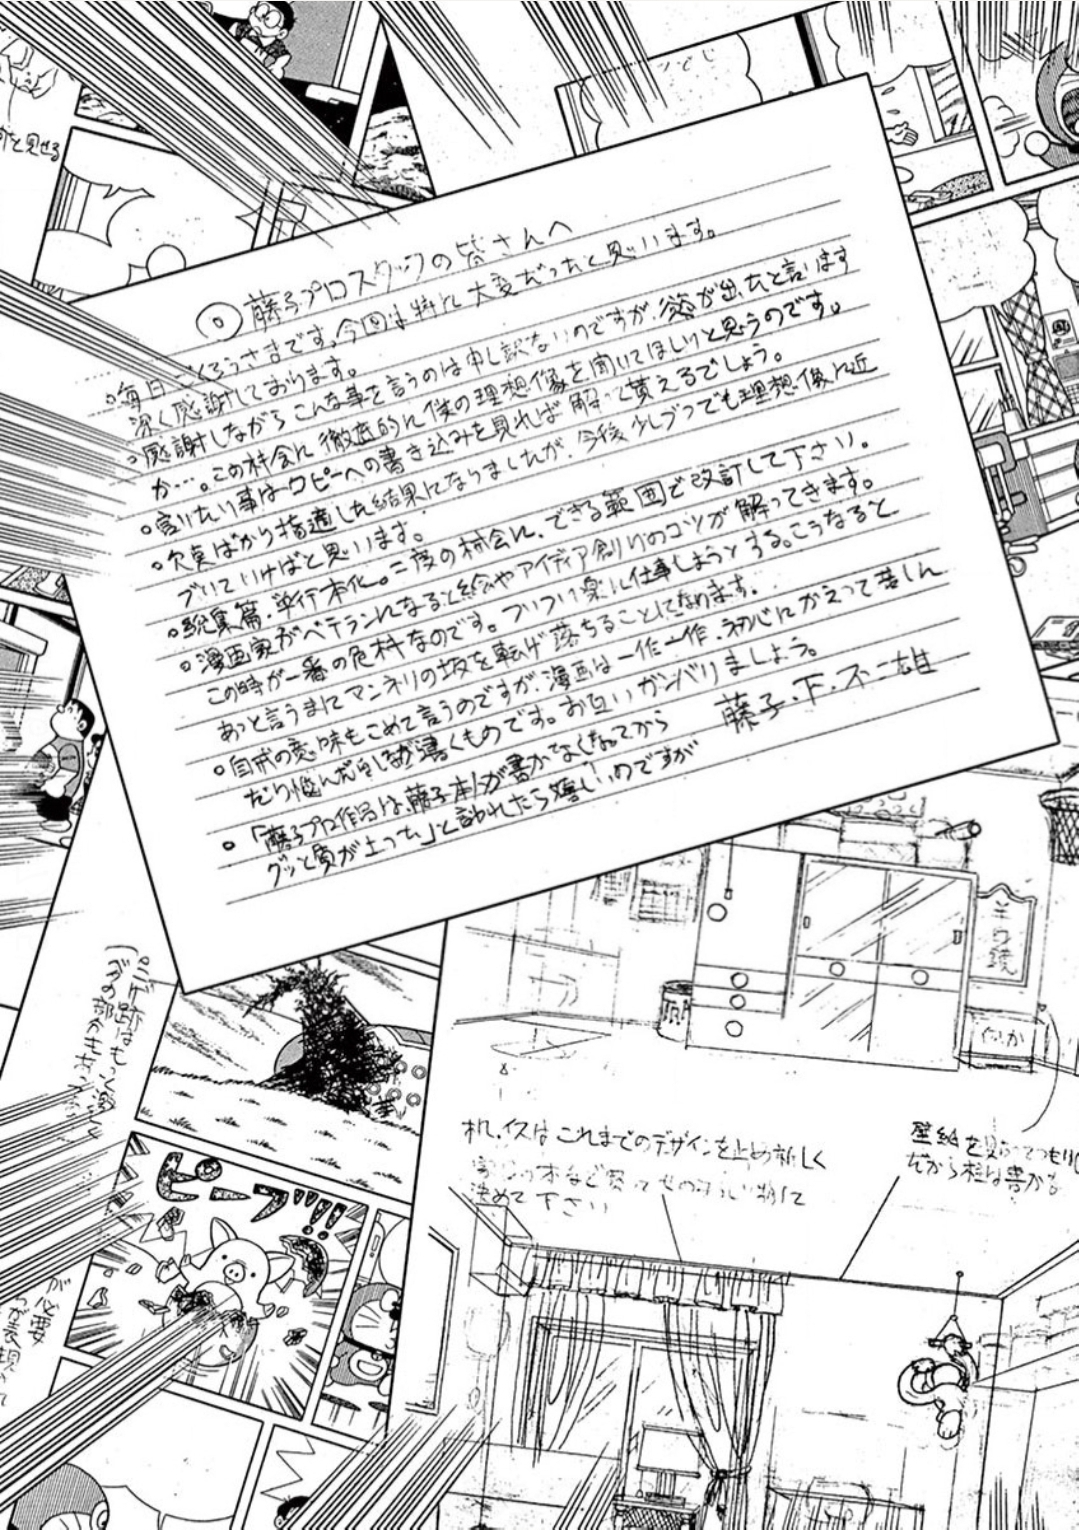 ◎藤子プロスタッフの皆さんへ
。毎日ごくろうさまです。今回は特に大変だったと思います。
深く感謝しております。
。感謝しながらこんな事を言うのは申し訳ないのですが、慾が出たと言います
か…。この機会に徹底的に僕の理想像を聞いてほしいと思うのです。
。言いたい事はコピーへの書き込みを見れば解って貰えるでしょう。
。欠点ばかり指適した結果になりましたが、今後少しづつでも理想像に近
づいていければと思います。
。総集篇・単行本化。二度の機会に、できる範囲で改訂して下さい。
。漫画家がベテランになると絵やアイディア創りのコツが解ってきます。
この時が一番の危機なのです。ついつい楽に仕事しようとする。こうなると
あっと言うまにマンネリの坂を転げ落ちることになります。
。自戒の意味もこめて言うのですが、漫画は一作一作、初心にかえって苦しん
だり悩んだりしながら書くものです。お互いガンバリましょう。
藤子・F・不二雄
。「藤子プロ作品は、藤子本人が書かなくなってから
グッと質が上った」と言われたら嬉しいのですが
と見せる
ニゲ跡はもく
ピーブ!!!
が必要
表現
机、イスはこれまでのデザインを止め新しく
決めて下さい
壁紙を
だから柱は